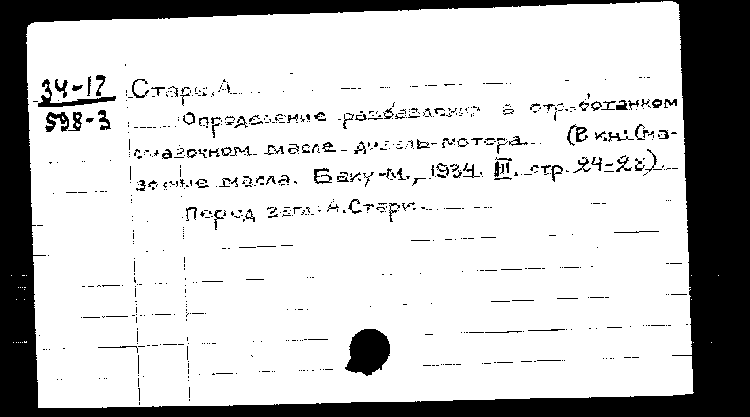 34-17
598-3
Старк, А.
Определение разбавления в отработанном
смазочном масле дизель-мотора. (В кн: Сма-
зочные масла. Баку-М., 1934. III. стр. 24-28).
Перед загл: А. Старк.